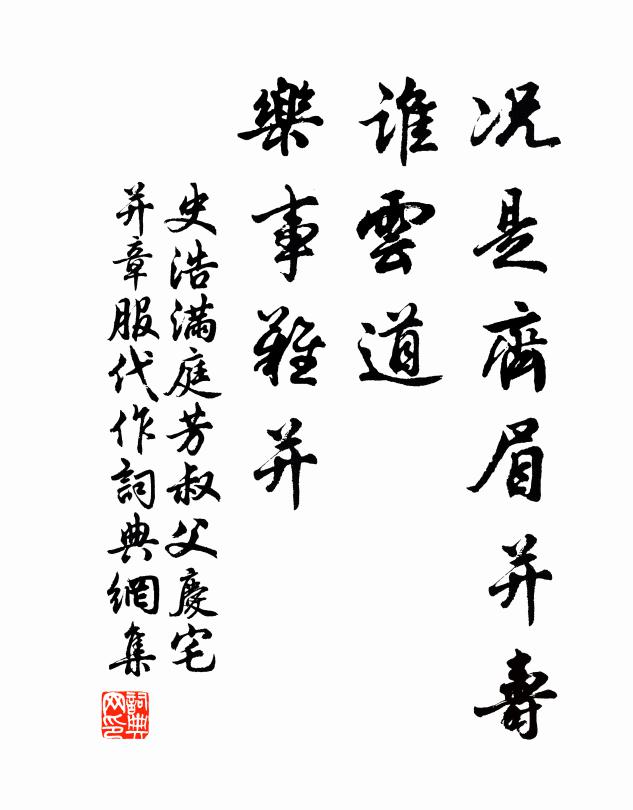 况是齊眉并壽
誰雲道
樂事難并
史浩滿庭芳叔父慶宅
并章服代作詞典網集
詞典网印